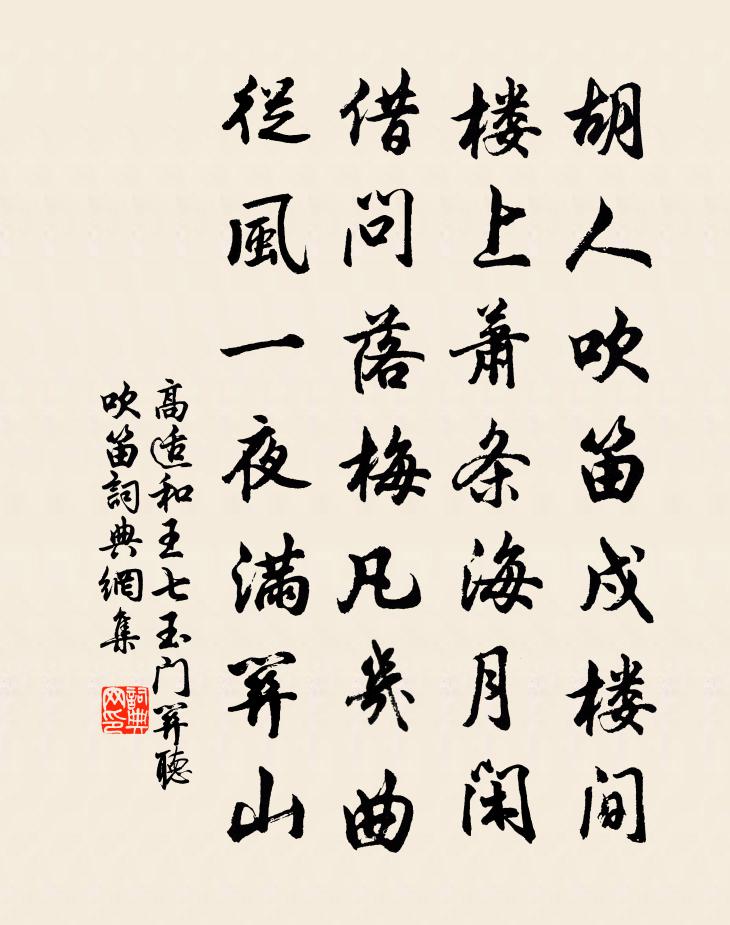 胡人吹笛戍楼间
楼上萧条海月闲
借问落梅凡几曲
從風一夜满関山
高適和王七玉门関聽
吹笛詞典網集
詞典
网印